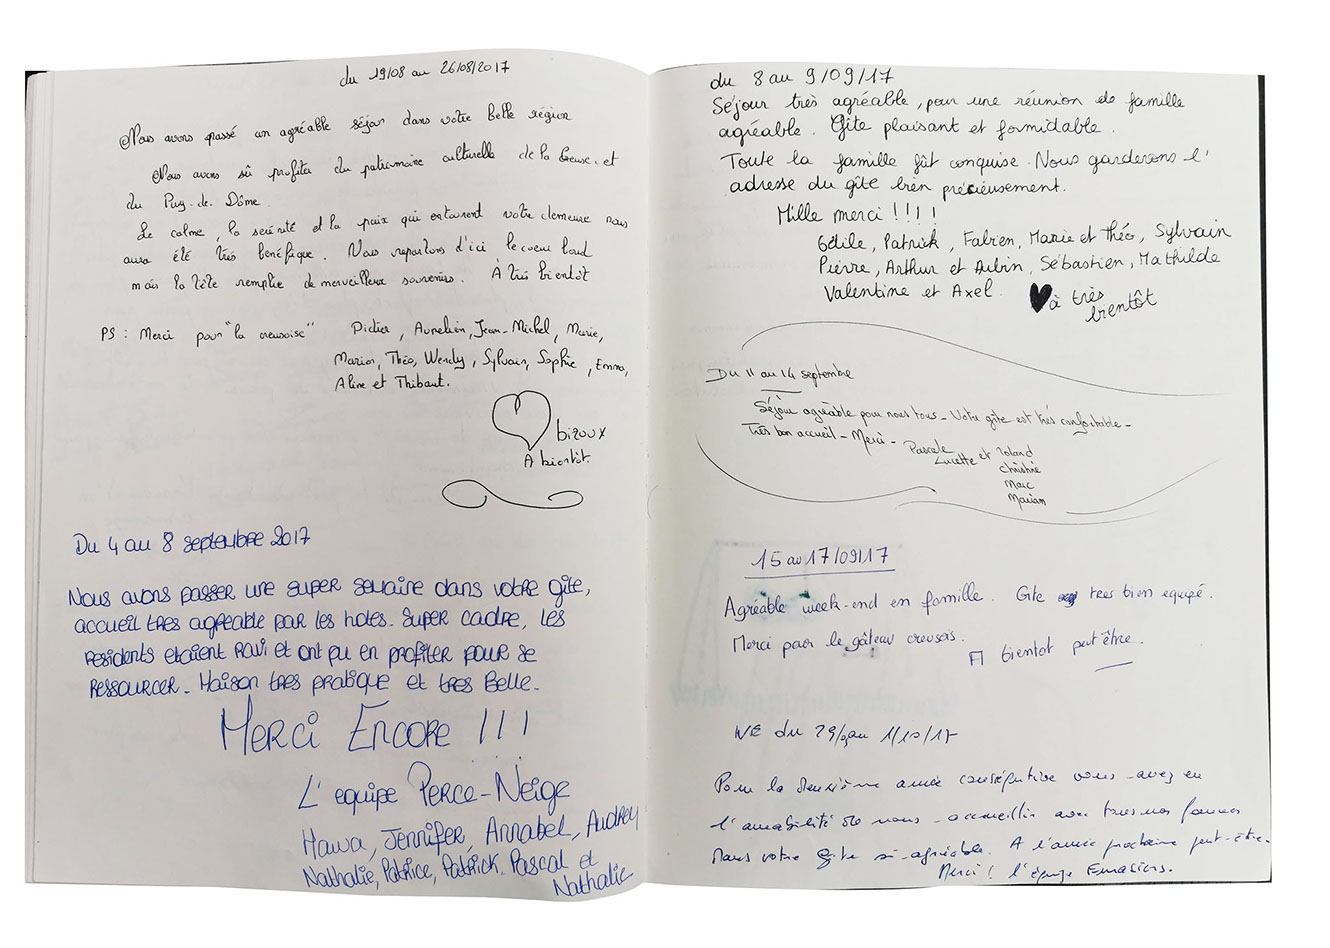 du 19/08 au 26/08/2017
Nous avons passé un agréable séjour dans votre belle région
Nous avons sû profiter du patrimoine culturelle de la Creuse et
du Puy-de-Dôme.
Le calme, la serénité et la paix qui entourent votre demeure nous
aura été très bénéfique. Nous repartons d'ici le coeur lourd
mais la tête remplie de merveilleux souvenirs. À très bientôt
PS : Merci pour "la creusoise"
Didier, Aurelien, Jean-Michel, Marie,
Marion, Théo, Wendy, Sylvain, Sophie, Emma,
Aline et Thibaut.
bizoux
A bientôt.
Du 4 au 8 septembre 2017
Nous avons passer une super semaine dans votre gite,
accueil tres agreable par les hotes. Super cadre, les
residents etaient ravi et ont pu en profiter pour se
ressourcer. Maison tres pratique et tres Belle.
Merci Encore !!!
L'equipe Perce-Neige
Hawa, Jennifer, Annabel, Audrey
Nathalie, Patrice, Patrick, Pascal et
Nathalie
du 8 au 9/09/17
Séjour très agréable, pour une réunion de famille
agréable. Gîte plaisant et formidable.
Toute la famille fût conquise. Nous garderons l'
adresse du gîte bien précieusement.
Mille merci !!!!
Odile, Patrick, Fabien, Marie et Théo, Sylvain
Pierre, Arthur et Aubin, Sébastien, Mathilde
Valentine et Axel.
à très
bientôt
Du 11 au 14 septembre
Séjour agréable pour nous tous - Votre gîte est très confortable -
Très bon accueil - Merci -
Pascale
Lucette et Roland
Christine
Marc
Marian
15 au 17/09/17
Agréable week-end en famille. Gite tres bien equipé.
Merci pour le gâteau creusois.
A bientot peut être.
WE du 29/9 au 1/10/17
Pour la deuxième année consécutive vous avez eu
l'amabilité de nous accueillir avec toutes nos femmes
dans votre Gite si agréable. A l'année prochaine peut-être.
Merci ! l'équipe